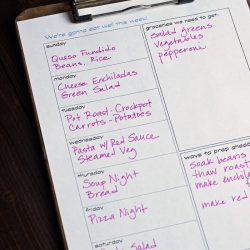 We're gonna eat well this week!
sunday
Queso Fundido
Beans, Rice
monday
Cheese Enchiladas
Green Salad
tuesday
Pot Roast: Crockpot
Carrots - Potatoes
wednesday
Pasta w/ Red Sauce
Steamed Veg
thursday
Soup Night
Bread
friday
Pizza Night
saturday
Salad
groceries we need to get:
salad greens
vegetables
pepperoni
ways to prep ahead
soak beans
thaw roast
make enchila
make red